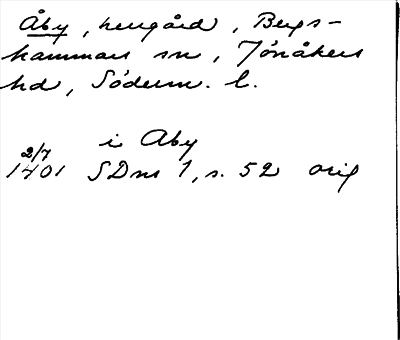 Åby, herrgård, Bergs-
hammars sn, Jönåkers
hd, Söderm. l.
i Aby
2/7
1401 SDns 1, s. 52 orig